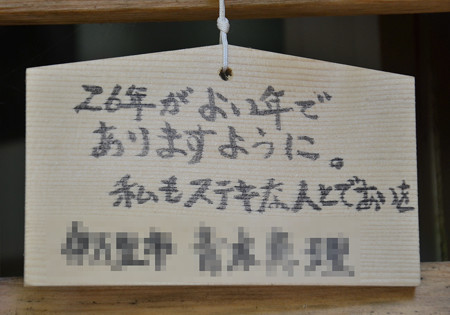 26年がよい年で
ありますように。
私もステキな人とであいを